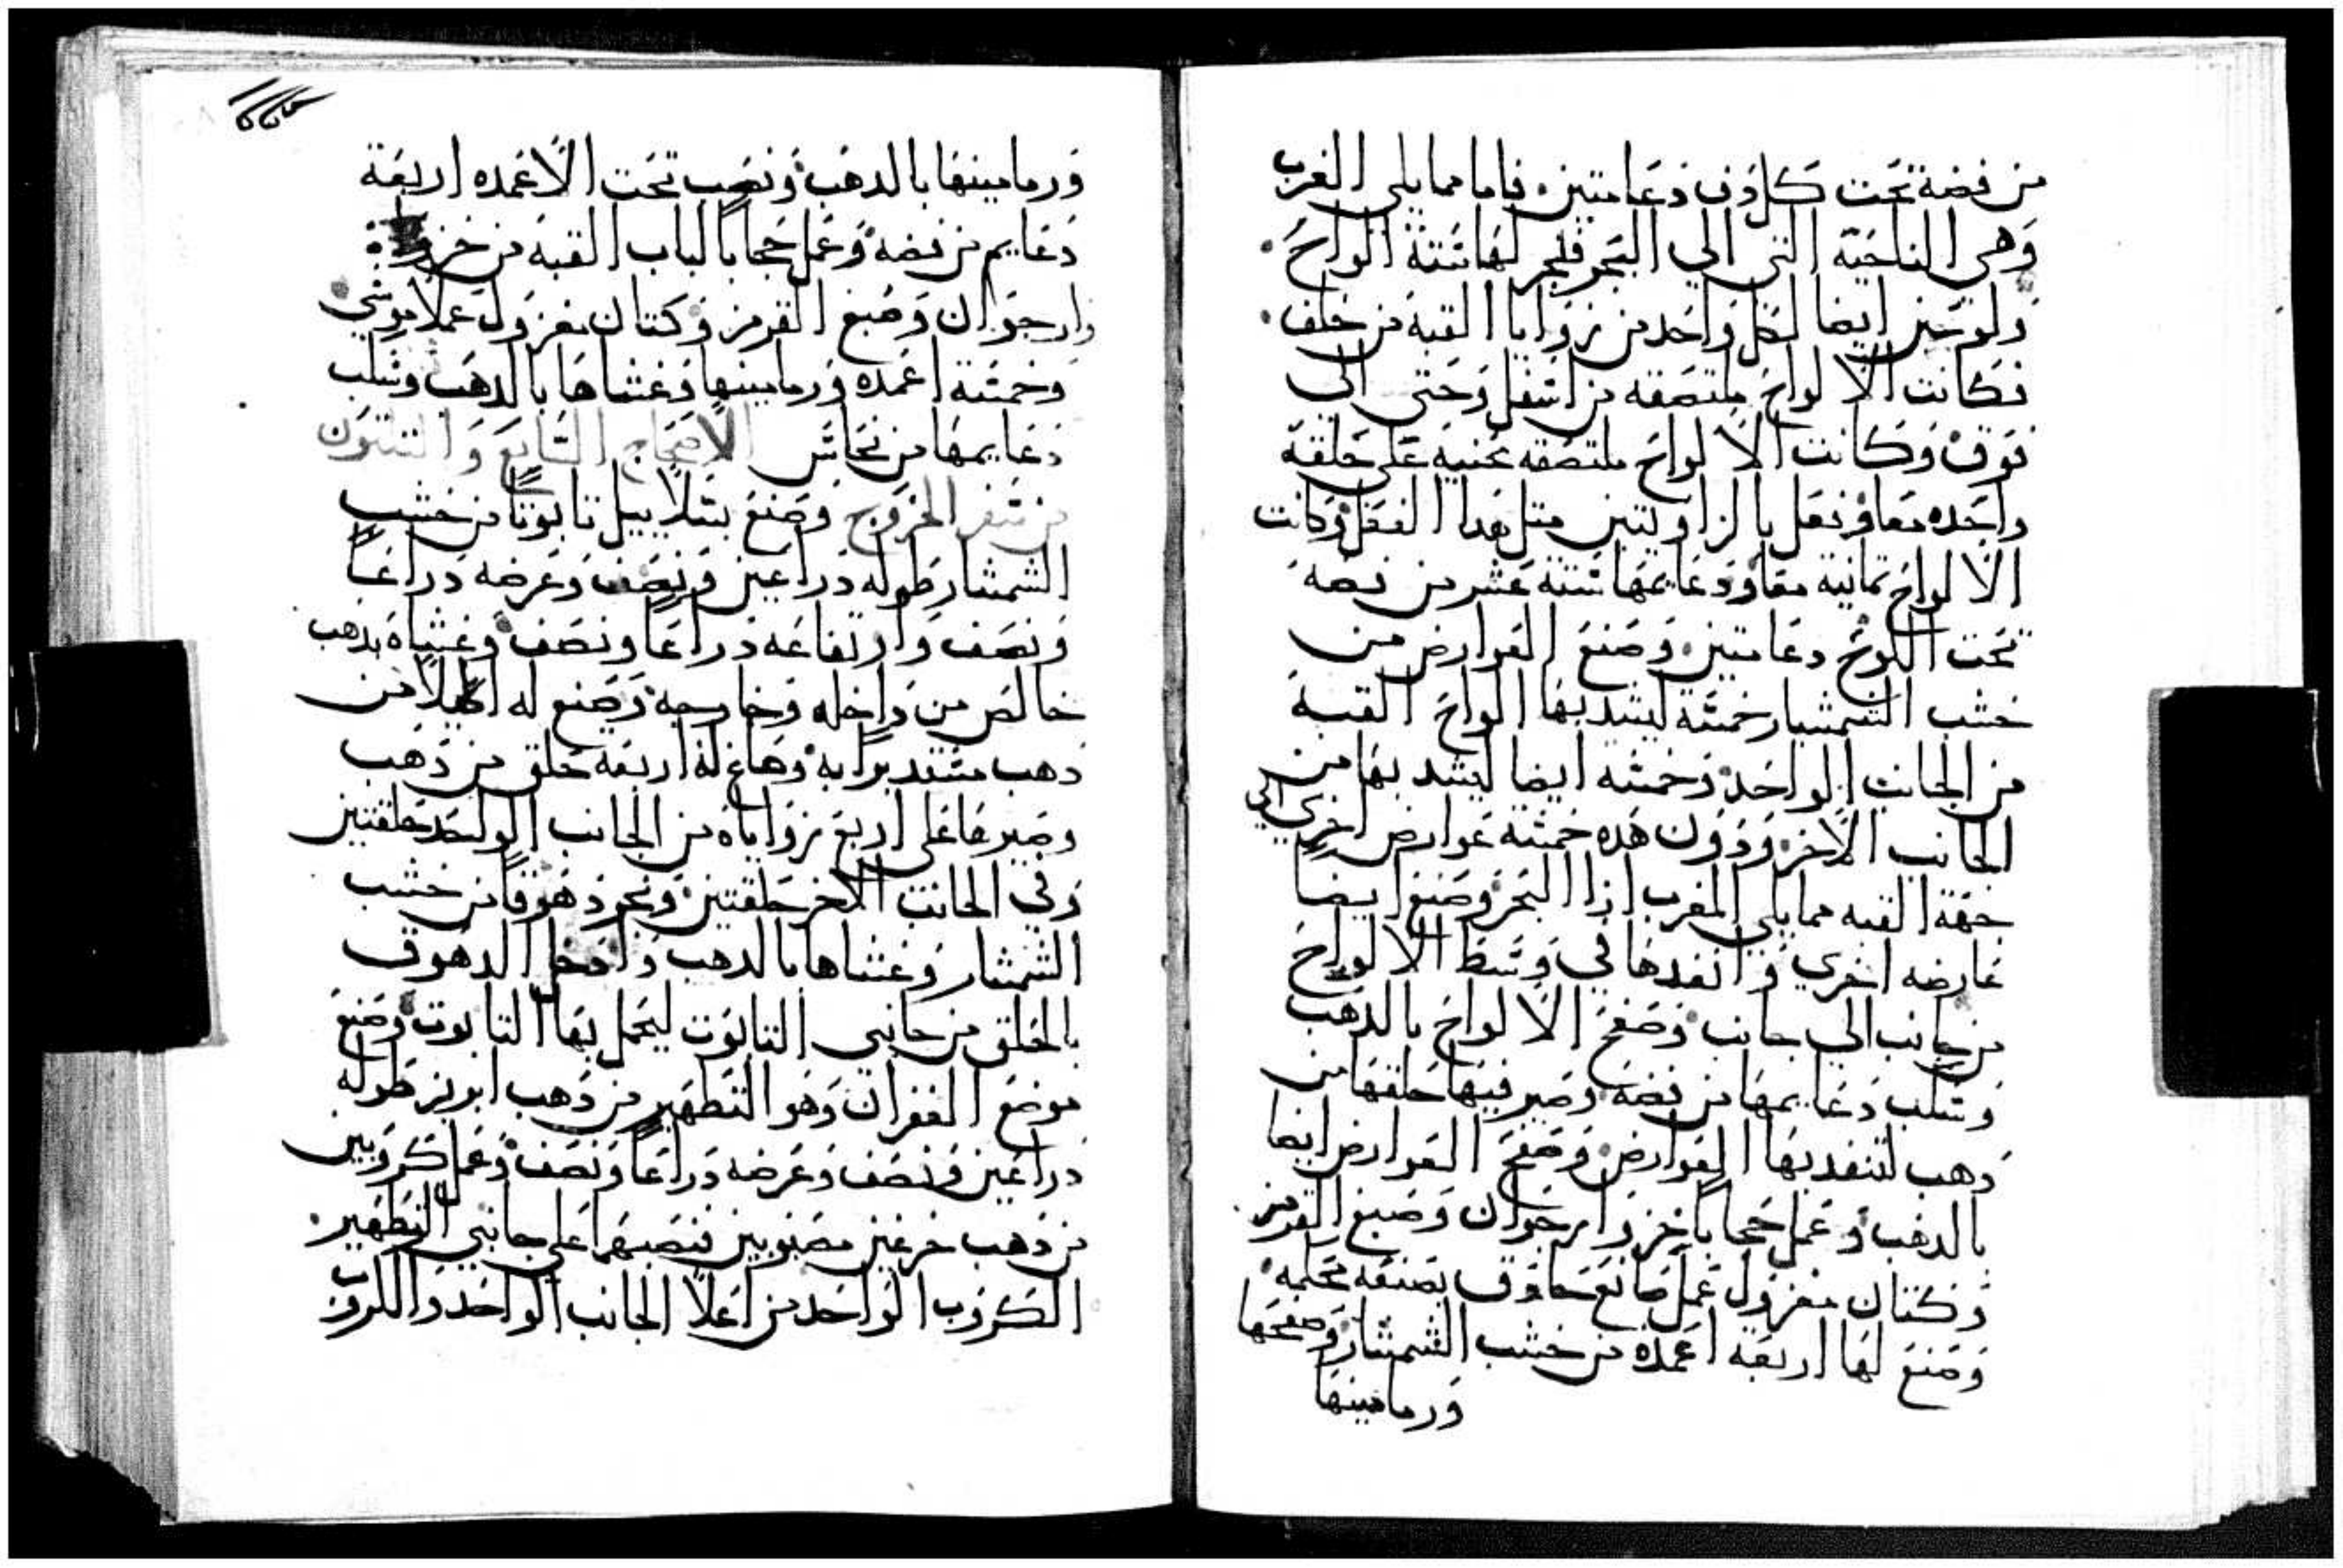 من فضة تحت كل دف دعامتين. فاما مما يلي الغرب
وهي الناحية التي الي البحر فنجر لها ستة الواح.
ولوحين ايضا لكل واحد من زوايا القبة من خلف.
فكانت الالواح ملتصقه من اسفل وحتي الي
فوق وكانت الالواح ملتصقه محنيه علي حلقة
واحده معا وفعل بالزاويتين متل هدا الفعل وكانت
الالواح تمانية معا ودعايمها ستة عشر من فضه
تحت اللوح دعامتين. وصنع العوارض من
خشب الشمشار خمسة ليشد بها الواح القبة
من الجانب الواحد وخمسه ايضا ليشد بها من
الجانب الاخر. ودون هده خمسة عوارض اخري الي
جهة القبه مما يلي المغرب ازا البحر وصنع ايضا
عارضه اخري وانفدها في وسط الالواح
من جانب الي جانب وصفح الالواح بالدهب
وسلب دعايمها من فضة وصير فيها حلقها من
دهب لتنفد بها العوارض. وصفح العوارض ايضا
بالدهب وعمل حجابا خز وارجوان وصبغ القرمز.
وكتان مغزول عمل صانع حاذق بصنعه محكمه
وصنع لها اربعة اعمده من خشب الشمشار وصفحها
ورمامينها
ورمامينها بالدهب ونصب تحت الاعمده اربعة
دعايم من فضه وعمل حجابا لباب القبة من خز
وارجوان وصبغ القرمز وكتان مغزول عملا موشي
وخمسة اعمده ورمامينها وغشاها بالدهب وسلب
دعايمها من نحاس الاصحاح السابع والتلتون
من سفر الخروج وصنع بسلاييل تابوتا من خشب
الشمشار طوله دراعين ونصف وعرضه دراعا
ونصف وارتفاعه دراعا ونصف وغشاه بدهب
خالص من داخله وخارجه وصنع له اكليلا من
دهب مستديرا به وصاغ له اربعة حلق من دهب
وصيرها علي اربع زواياه من الجانب الواحد حلقتين
وفي الجانب الاخر حلقتين ونجر دهوقا من خشب
الشمشار وغشاها بالدهب وادخل الدهوق
بالحلق من جانبي التابوت ليحمل بها التابوت وصنع
موضع الغفران وهو التطهير من دهب ابريز طوله
دراعين ونصف وعرضه دراعا ونصف وعمل كروبين
من دهب مفرغين مصبوبين فنصبهما علي جانبي التطهير.
الكروب الواحد من اعلا الجانب الواحد والكروب